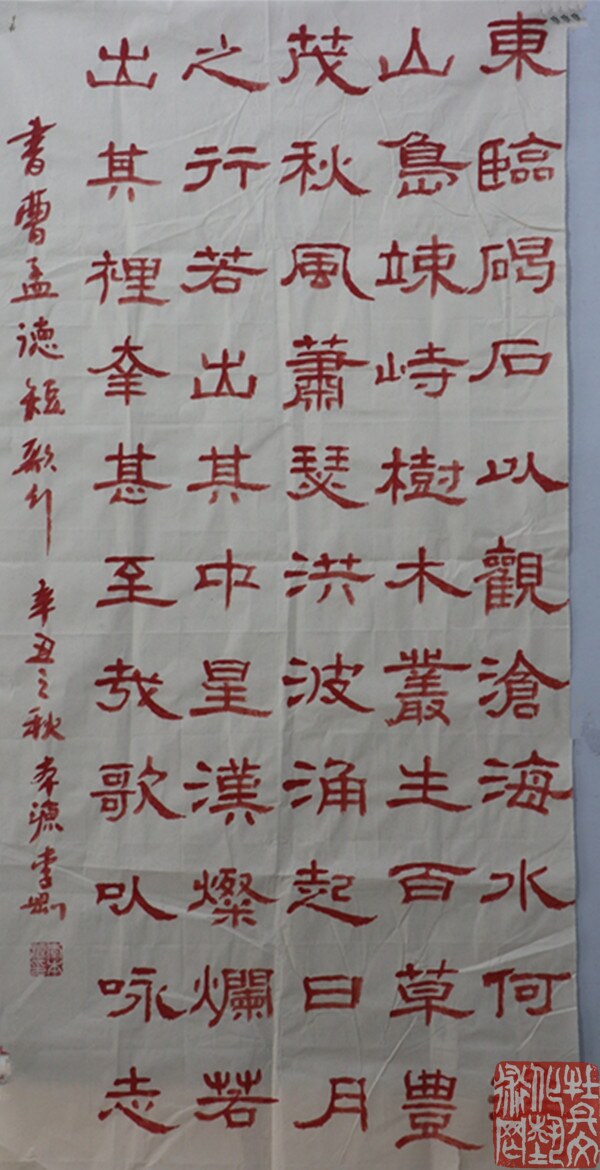 東臨碣石以觀滄海水何
山島竦峙樹木叢生百草豊
茂秋風蕭瑟洪波涌起日月
之行若出其中星漢燦爛若
出其裡幸甚至哉歌以咏志
書曹孟德短歌行 辛丑之秋 李剛